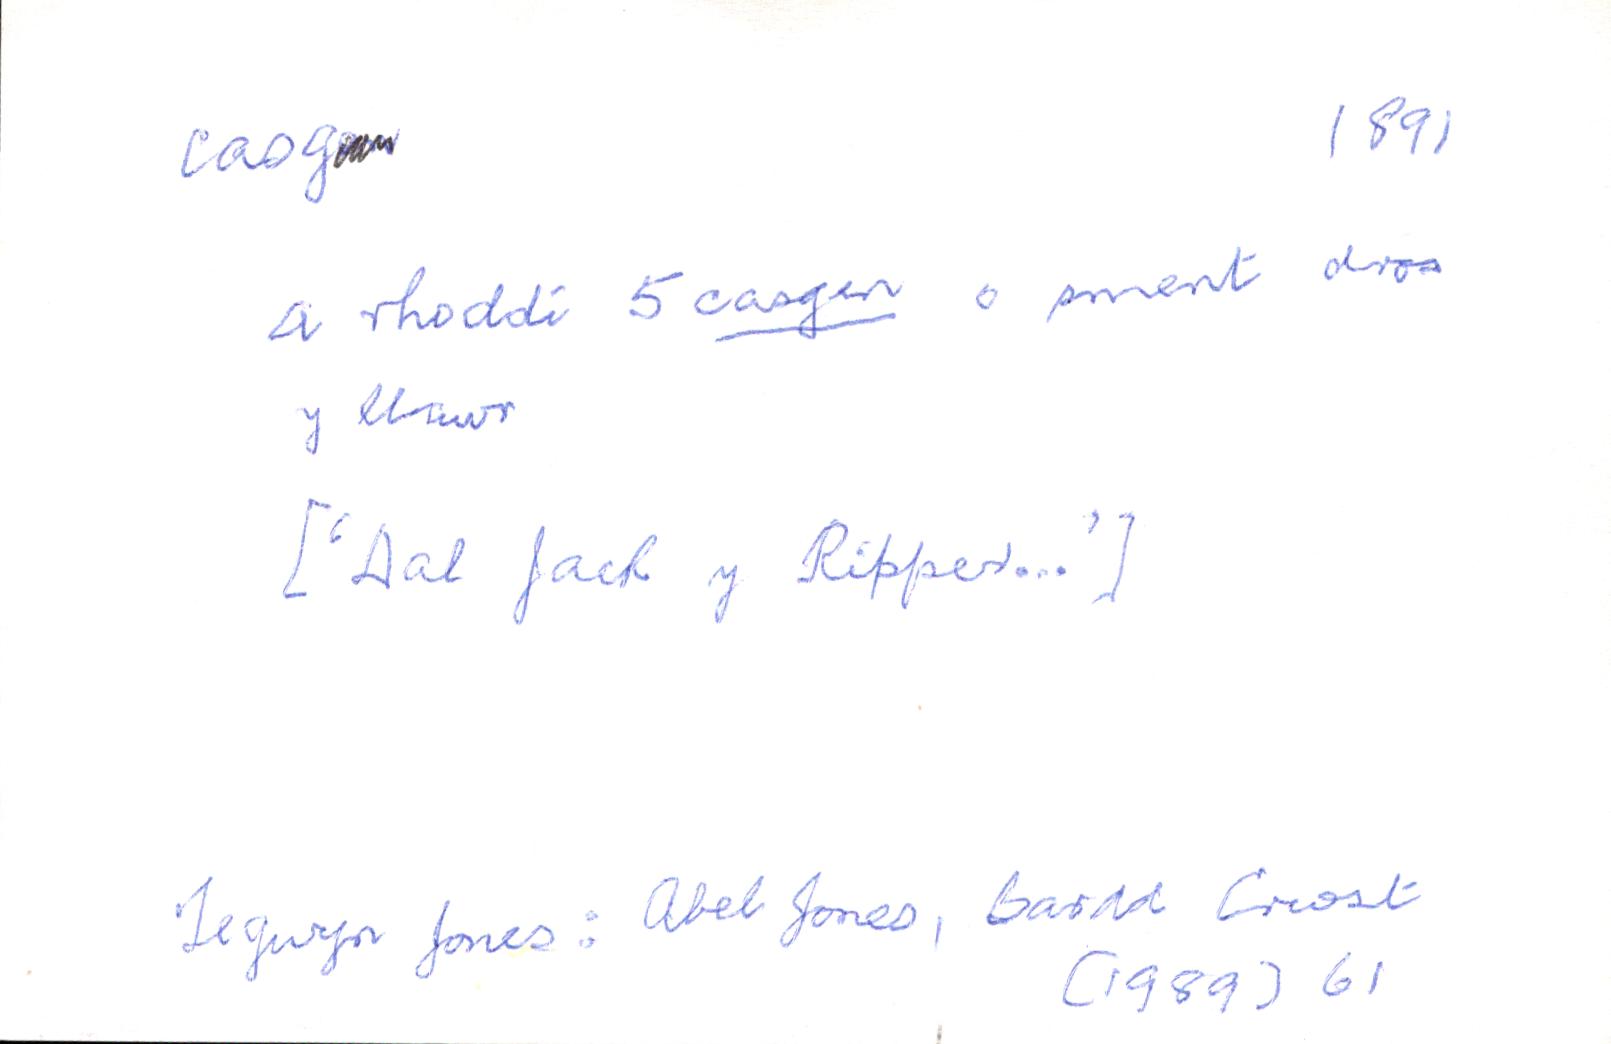 casgen 1891
a rhoddi 5 casgen o sment dros
y llawr
['Dal Jack y Ripper...']
Tegwyn Jones: Abel Jones, Bardd Crwst
(1989) 61